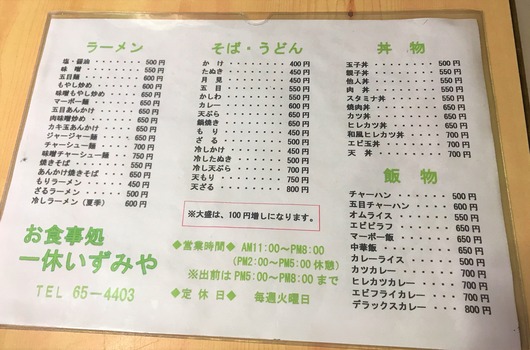 ラーメン
塩・醤油 500円
味噌 550円
五目麺 600円
もやし炒め 600円
味噌もやし炒め 650円
マーボー麺 650円
五目あんかけ 650円
肉味噌炒め 650円
カキ玉あんかけ 650円
ジャージャー麺 650円
チャーシュー麺 700円
味噌チャーシュー麺 750円
焼きそば 550円
あんかけ焼きそば 650円
もりラーメン 450円
ざるラーメン 500円
冷しラーメン（夏季） 600円
お食事処
一休いずみや
TEL 65-4403
そば・うどん
かけ 400円
たぬき 450円
月見 450円
五目 550円
かしわ 550円
カレー 600円
天ぷら 650円
鍋焼き 650円
もり 450円
ざる 500円
冷しかけ 450円
冷したぬき 500円
冷し天ぷら 700円
天もり 750円
天ざる 800円
※大盛は、100円増しになります。
◆営業時間◆ AM11:00～PM8:00
(PM2:00～PM5:00休憩)
※出前はPM5:00～PM8:00まで
◆定休日◆ 毎週火曜日
丼物
玉子丼 500円
親子丼 550円
他人丼 550円
肉丼 550円
スタミナ丼 650円
焼肉丼 650円
カツ丼 650円
ヒレカツ丼 650円
和風ヒレカツ丼 700円
エビ玉丼 700円
天丼 700円
飯物
チャーハン 500円
五目チャーハン 600円
オムライス 550円
エビピラフ 650円
マーボー飯 650円
中華飯 650円
カレーライス 500円
カツカレー 700円
ヒレカツカレー 700円
エビフライカレー 700円
デラックスカレー 800円